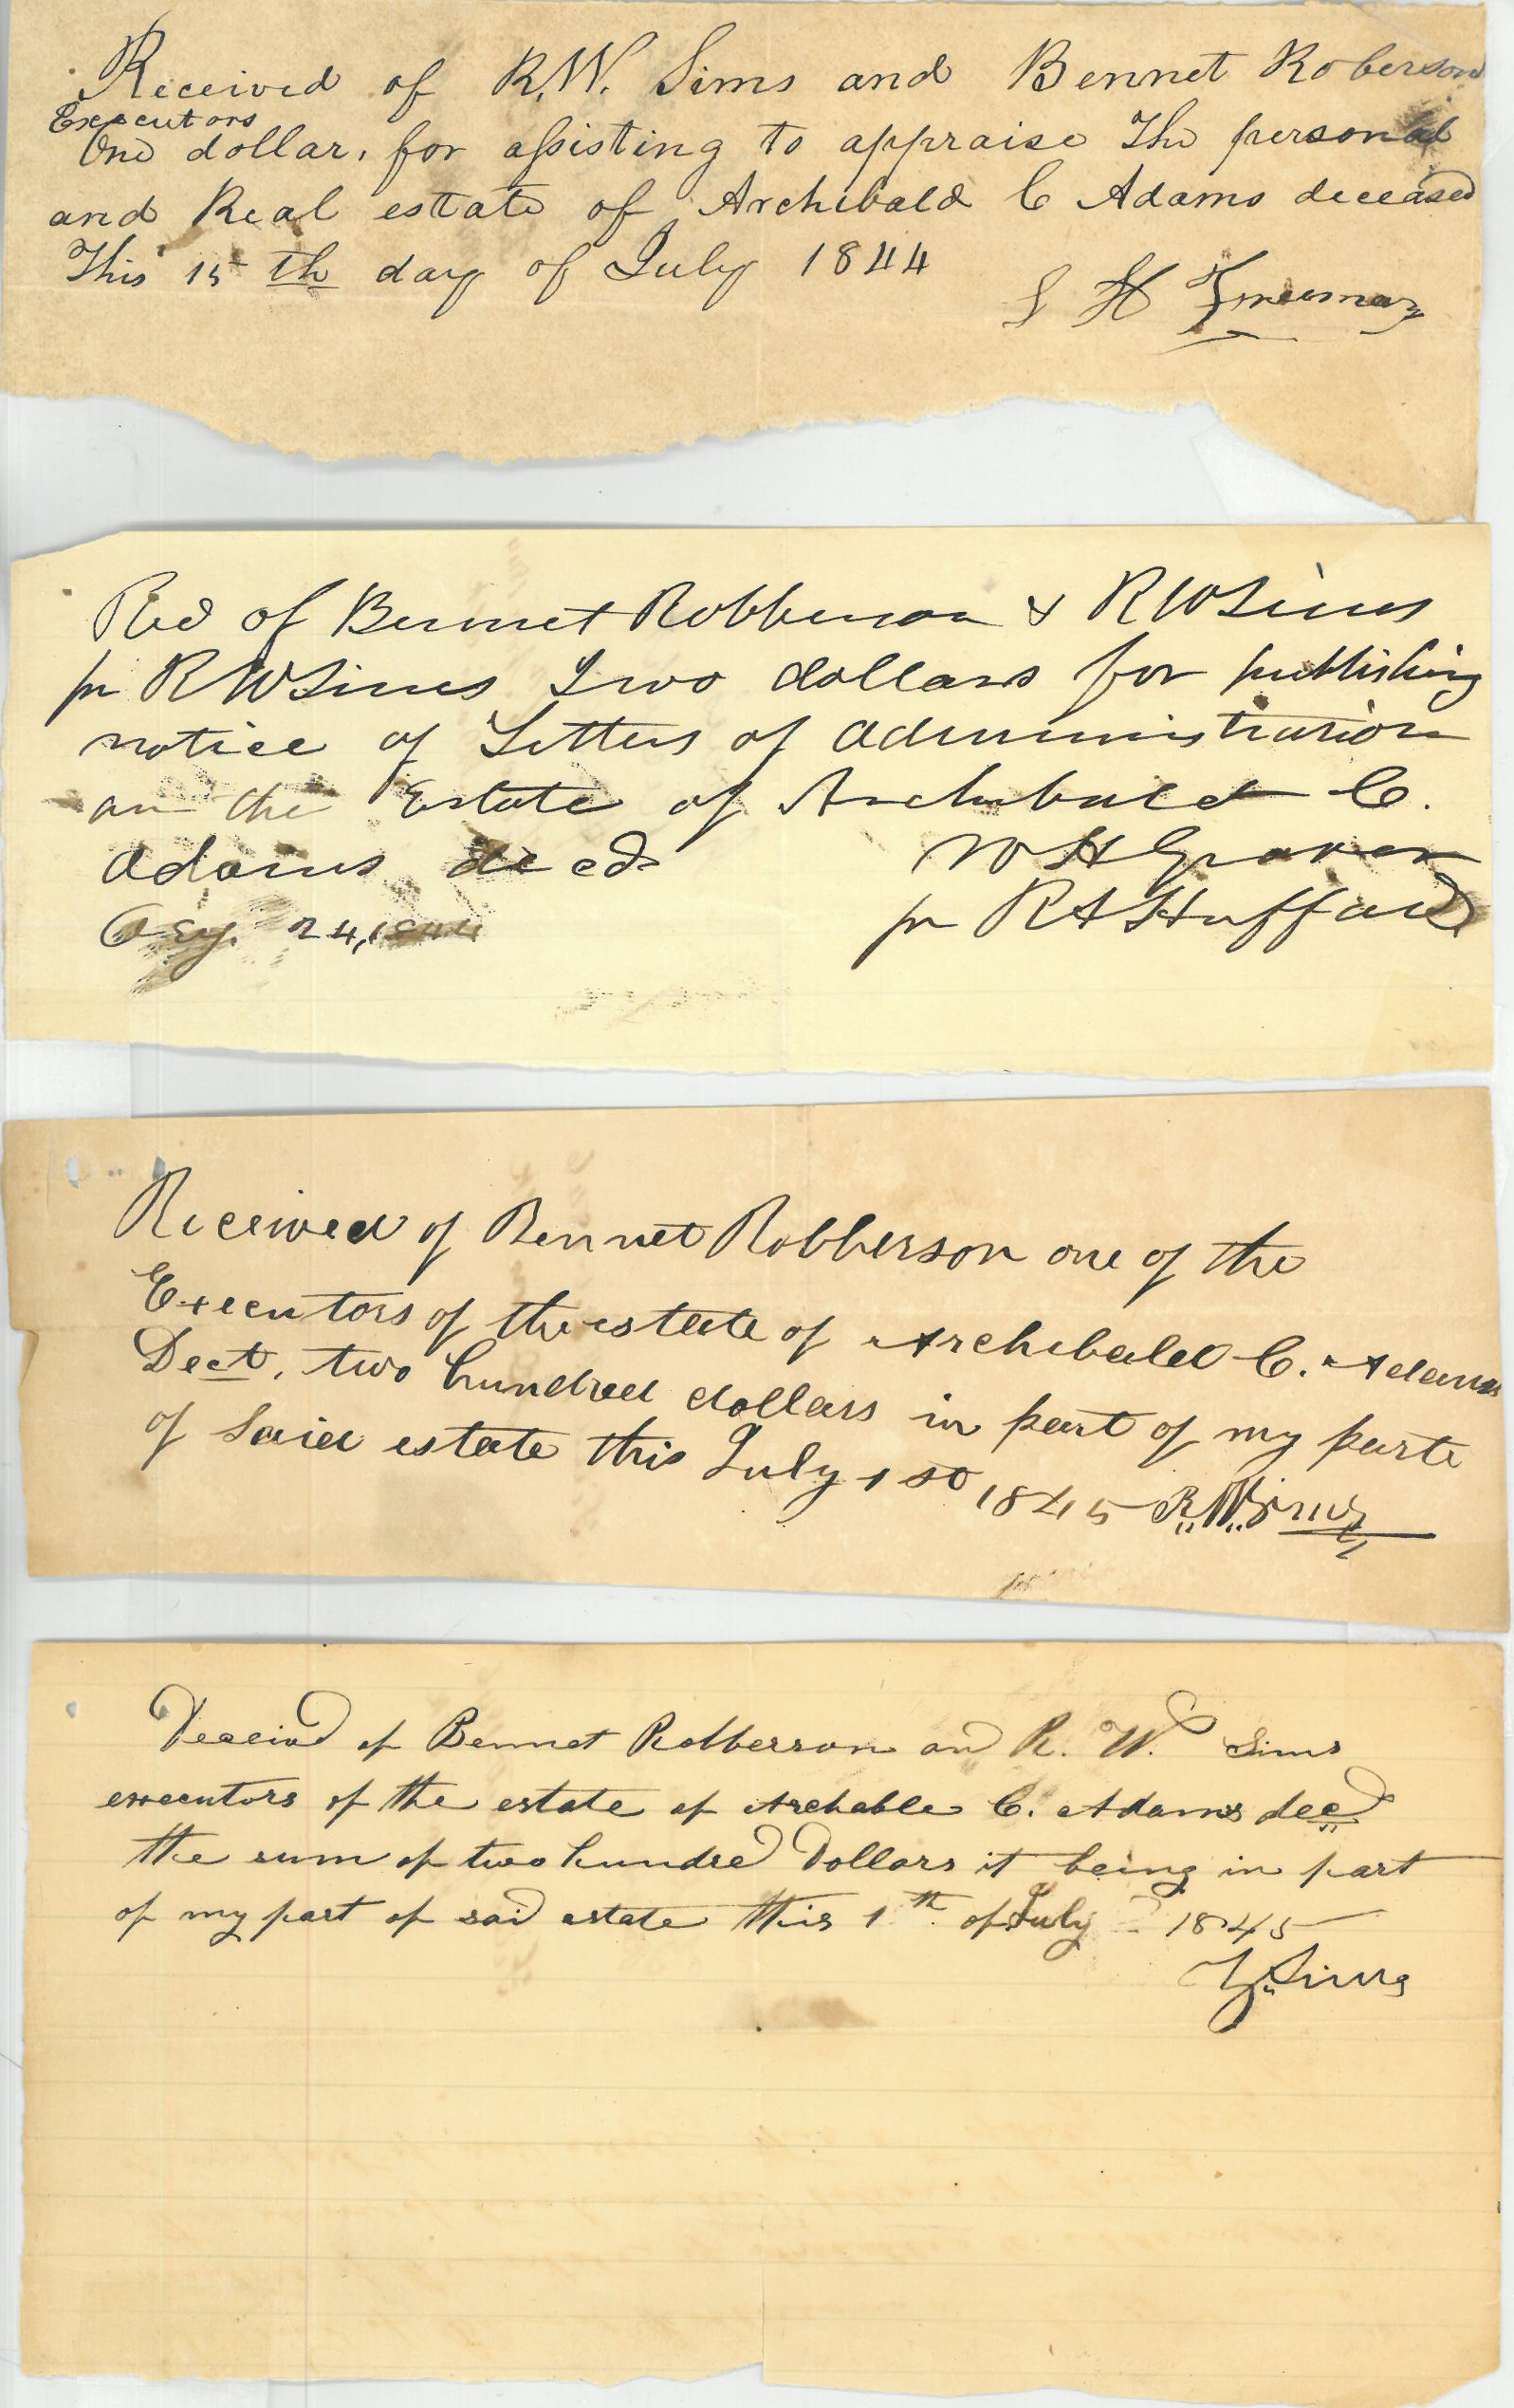 Received of R.W. Sims and Bennet Roberson
Executors
One dollar, for assisting to appraise The personal
and Real estate of Archibald C Adams deceased
This 15 th day of July 1844
S H Freeman
Recd of Bennet Robberson & R W Sims
pr R W Sims Two dollars for publishing
notice of Letters of administration
on the Estate of Archibald C.
Adams decd
W H Graves
24, 1844
pr R A Huffard
Received of Bennet Robberson one of the
Executors of the estate of Archibald C. Adams
Dect, two hundred dollars in part of my parte
of said estate this July 1st 1845 R.W. Sims
Received of Bennet Robberson and R. W. Sims
executors of the estate of Archable C. Adams decd
the sum of two hundred Dollars it being in part
of my part of said estate this 1th of July 1845
Sims